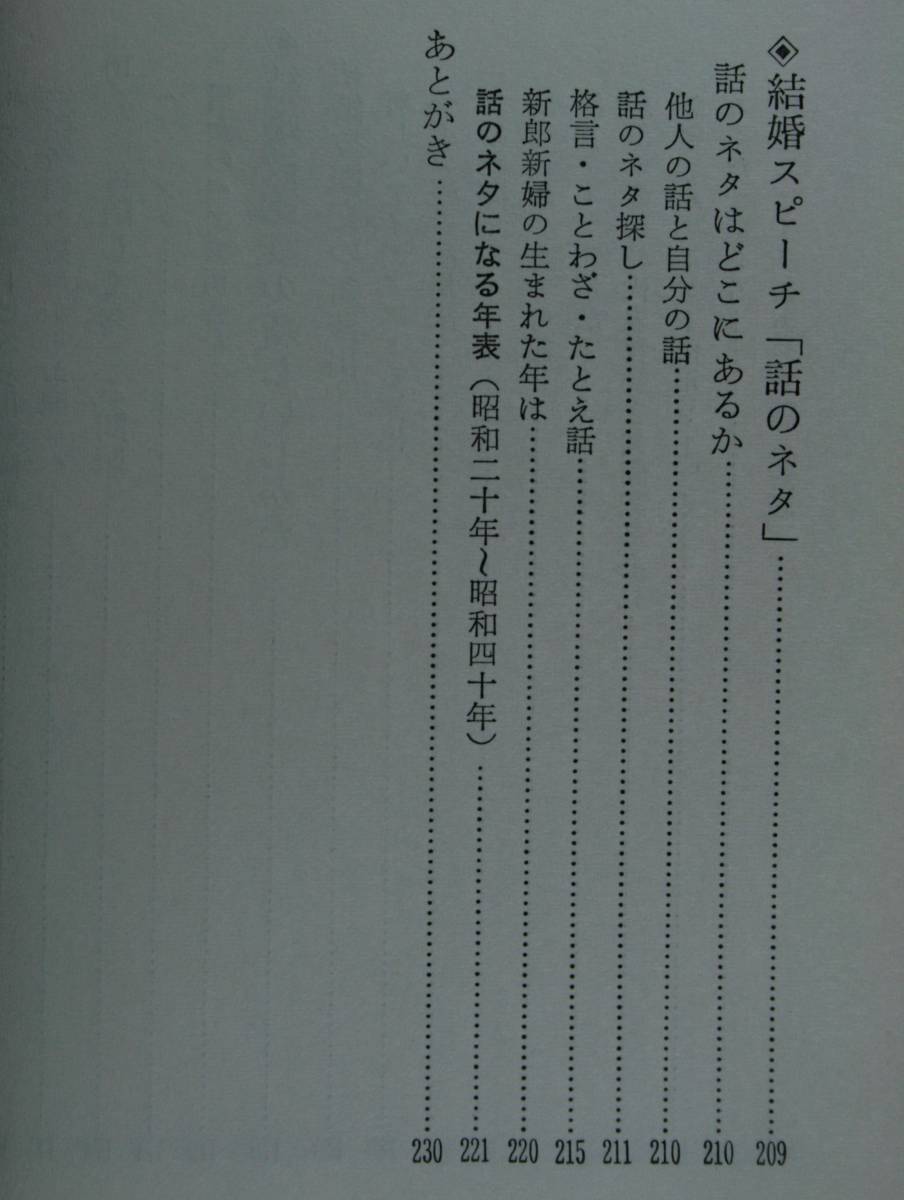 ◈結婚スピーチ「話のネタ」……………209
話のネタはどこにあるか……………210
他人の話と自分の話……………210
話のネタ探し……………211
格言・ことわざ・たとえ話……………215
新郎新婦の生まれた年は……………220
話のネタになる年表（昭和二十年～昭和四十年）……………221
あとがき……………230